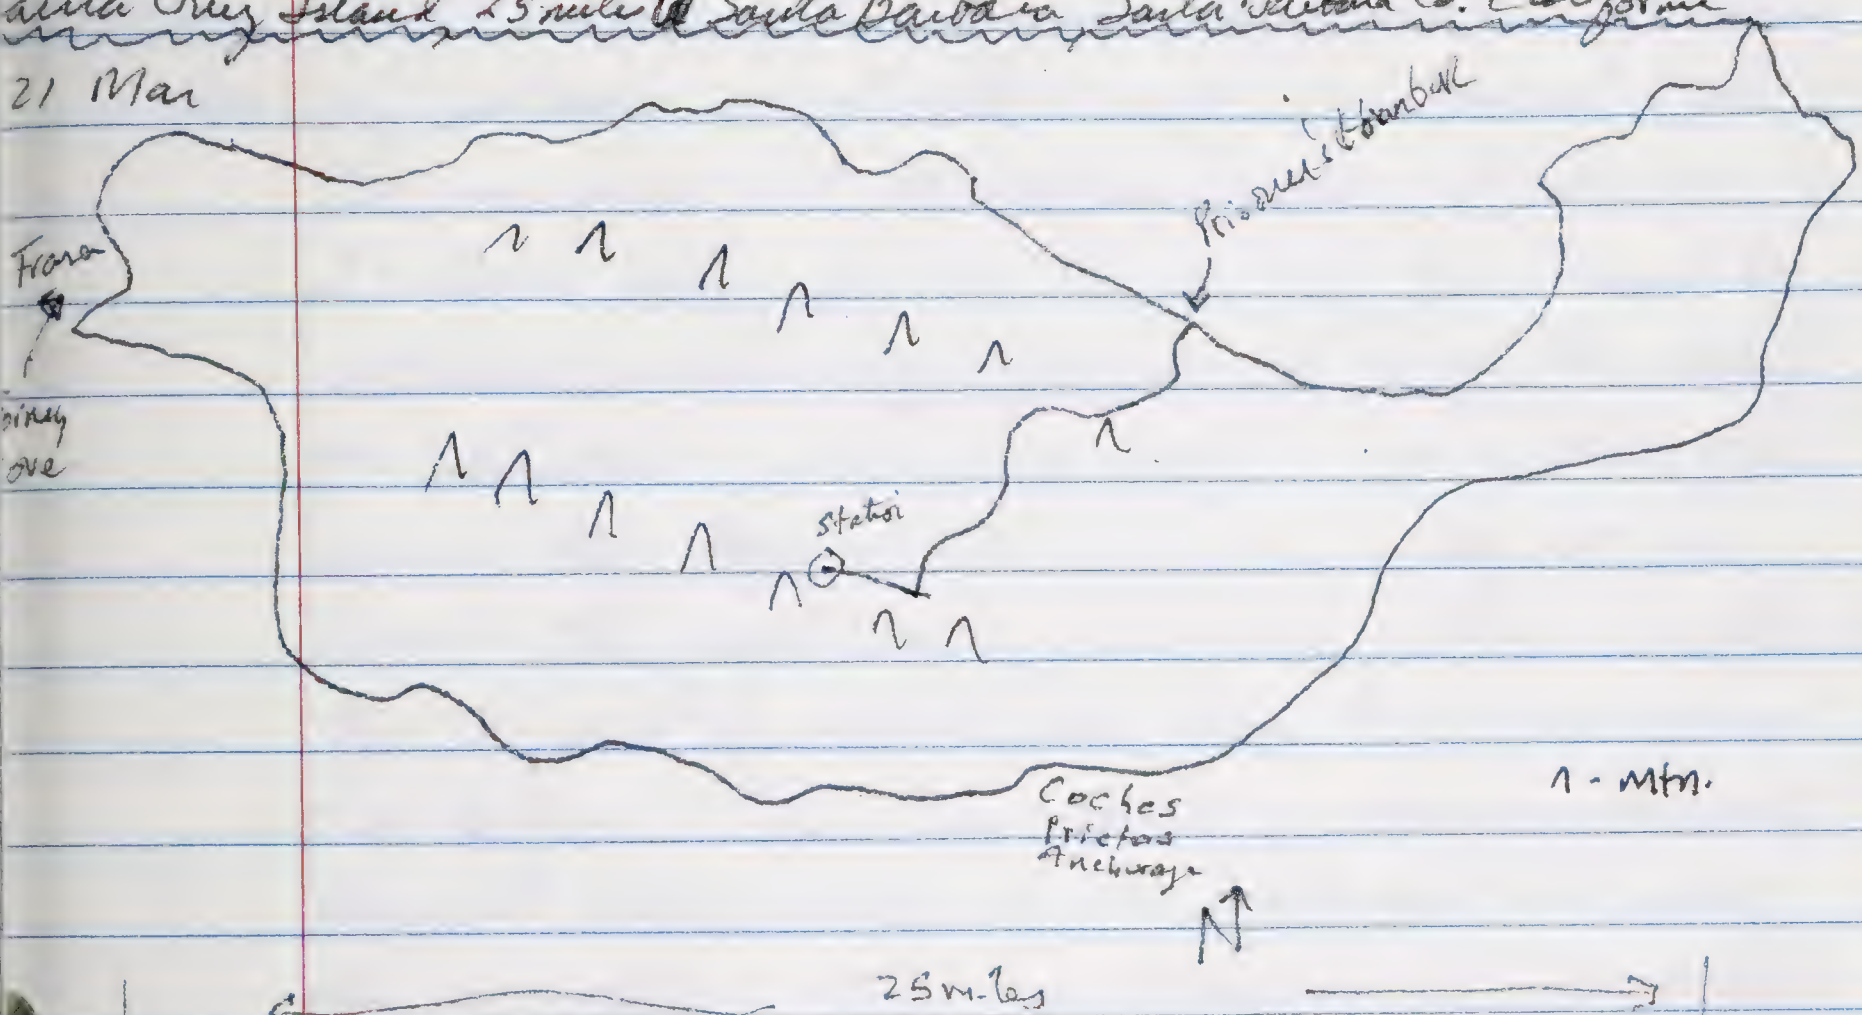 Cruz Island 25 miles Santa Barbara, Santa Barbara Co. California
21 Mar
Prisoner's Harbor
Fraser
Station
Coches
Prietos
Anchorage
Λ - Mtn.
N
25 miles